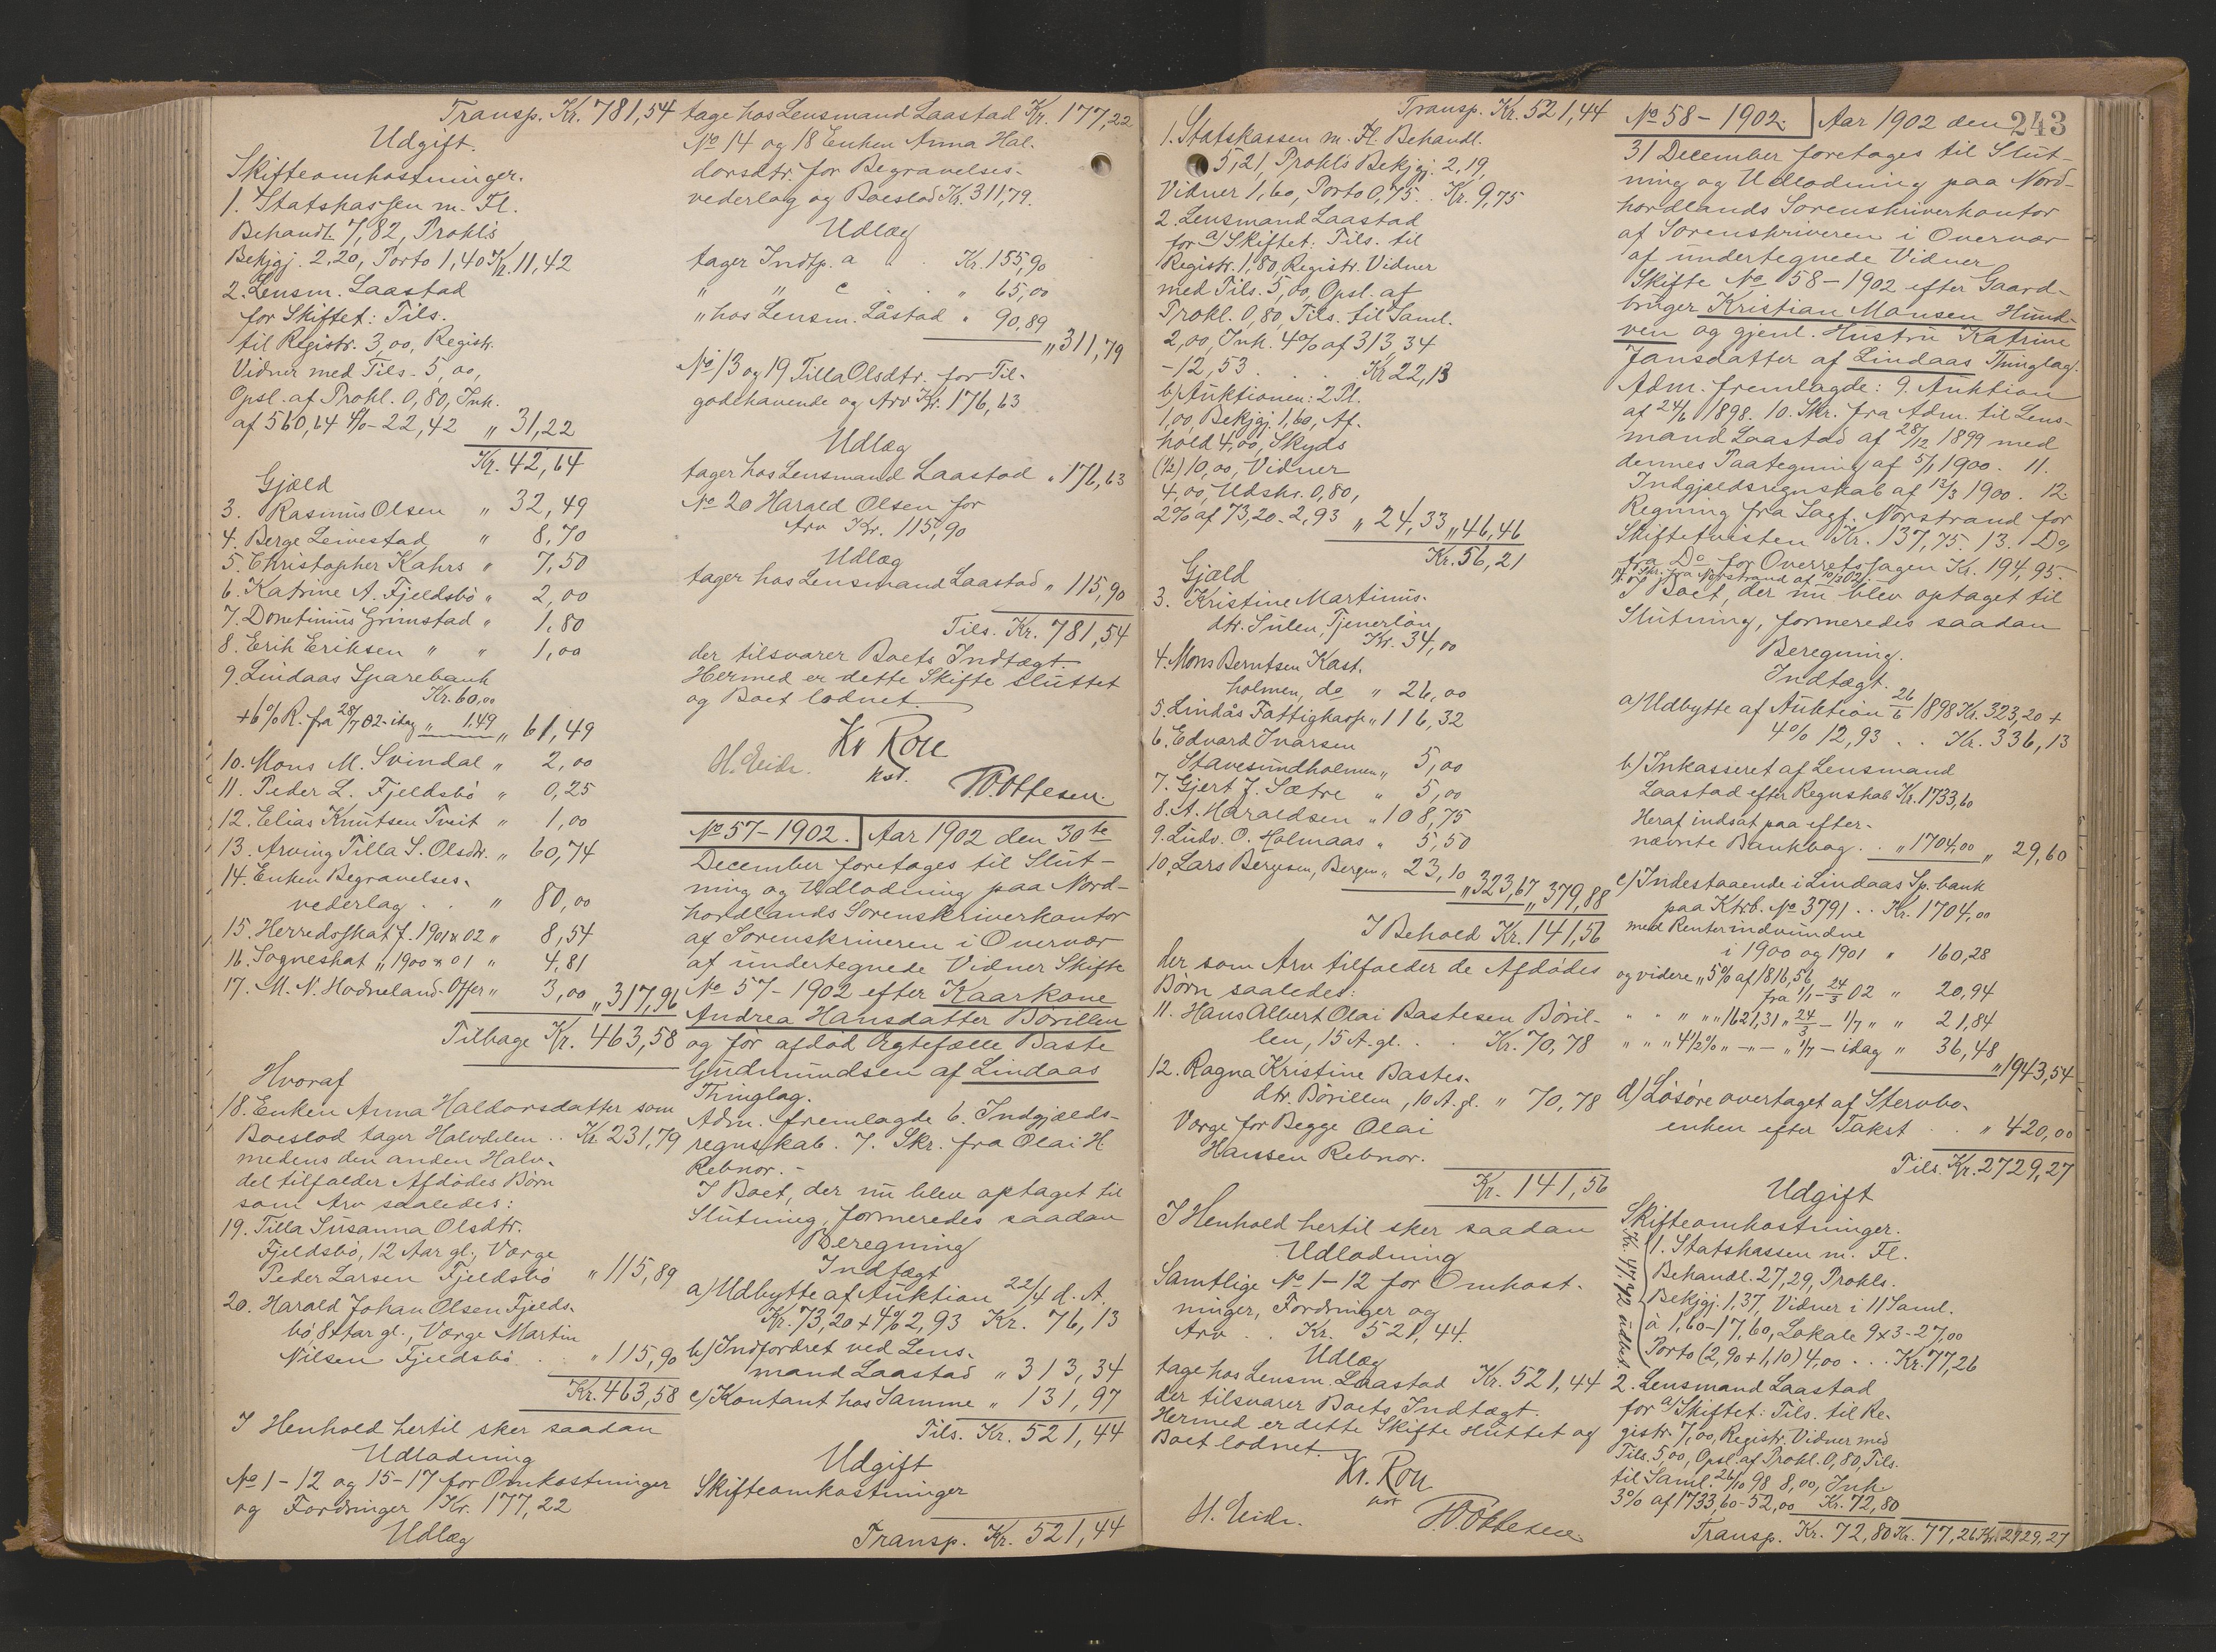 Transp. Kr. 781,54
Udgift.
Skifteomkostninger.
1. Statskassen m. Fl.
Behandl. 7,82, Prokl's
Bekjgj. 2,20, Porto 1,40 Kr. 11,42
2. Lensm. Laastad
for Skiftet: Tils.
til Registr. 3,00, Registr.
Vidner med Tils. 5,00,
Opsl. af Prokl. 0,80, Ink.
af 560,64 4% - 22,42 " 31,22
Kr. 42,64
Gjæld
3. Rasmus Olsen " 32,49
4. Berge Lewestad " 8,70
5. Christopher Kahrs " 7,50
6. Katrine A. Fjeldsbö " 2,00
7. Donetinius Grimstad " 1,80
8. Erik Eriksen " " 1,00
9. Lindaas Sparebank
Kr. 60,00
+ 6% R. fra 28/7 02 - idag " 1.49 " 61,49
10. Mons M. Svindal " 2,00
11. Peder L. Fjeldsbö " 0,25
12. Elias Knutsen Tveit " 1,00
13. Arving Tilla S. Olsdtr. " 60,74
14. Enken Begravelses-
vederlag . . " 80,00
15. Herredsskat f. 1901 x 02 " 8,54
16. Sogneskat " 1900 x 01 " 4,81
17. M. N. Hodneland Offer " 3,00 " 317,96
Tilbage Kr. 463,58
Hvoraf
18. Enken Anna Haldorsdatter som
Boeslod tager Halvdelen . . Kr. 231,79
medens den anden Halv-
del tilfalder Afdödes Börn
som Arv saaledes:
19. Tilla Susanna Olsdtr.
Fjeldsbö, 12 Aar gl., Værge
Peder Larsen Fjeldsbö " 115,89
20. Harald Johan Olsen Fjelds-
bö 8 Aar gl., Værge Martin
Nilsen Fjeldsbö . . " 115,90
Kr. 463,58
I Henhold hertil sker saadan
Udlodning
No 1 - 12 og 15 - 17 for Omkostninger
og Fordringer Kr. 177,22
Udlæg
tage hos Lensmand Laastad Kr. 177,22
No 14 og 18 Enken Anna Hal-
dorsdtr. for Begravelses-
vederlag og Boeslod Kr. 311,79.
Udlæg
tager Indtp. a . . Kr. 155,90
" " c . . " 65,00
" hos Lensm. Låstad " 90,89
" 311,79
No 13 og 19 Tilla Olsdtr. for Til-
godehavende og Arv Kr. 176,63
Udlæg
tager hos Lensmand Laastad " 176,63
No 20 Harald Olsen for
Arv Kr. 115,90
Udlæg
tager hos Lensmand Laastad " 115,90
Tils. Kr. 781,54
der tilsvarer Boets Indtægt.
Hermed er dette Skifte sluttet
og Boet lodnet.
Kr Roll
H. Eide. kst.
W. Ottesen.
No 57 - 1902. Aar 1902 den 30te
December foretoges til Slut-
ning og Udlodning paa Nord-
hordlands Sorenskriverkontor
af Sorenskriveren i Overvær
af undertegnede Vidner Skifte
No 57 - 1902 efter Kaarkone
Andrea Hansdatter Börillen
og för afdöd Ægtefælle Baste
Gudmundsen af Lindaas
Thinglag.
Adm. fremlagde 6. Indgjælds-
regnskab. 7. Skr. fra Olai H.
Rebnor. -
I Boet, der nu blev optaget til
Slutning, formeredes saadan
Beregning
Indtægt
a) Udbytte af Auktion 22/4 d. A.
Kr. 73,20 + 4% 2,93 Kr. 76,13
b) Indfordret ved Lens-
mand Laastad " 313,34
c) Kontant hos Samme " 131,97
Tils. Kr. 521,44
Udgift
Skifteomkostninger
Transp. Kr. 521,44
Transp. Kr. 521,44
1. Statskassen m. Fl. Behandl.
5,21, Prokl's Bekjgj. 2,19,
Vidner 1,60, Porto 0,75 . . Kr. 9,75
2. Lensmand Laastad
for a) Skiftet: Tils. til
Registr. 1,80, Registr. Vidner
med Tils. 5,00, Opsl. af
Prokl. 0,80, Tils. til Saml.
2,00, Ink. 4% af 313,34
- 12,53 . . Kr. 22,13
b) Auktionen: 2 Pl.
1,00, Bekjgj. 1,60, Af-
hold 4,00, Skyds
(1/2) 10,00, Vidner
4,00, Udskr. 0,80,
2% af 73,20 - 2,93 " 24,33 " 46,46
Kr. 56,21
Gjæld
3. Kristine Martinus-
dtr. Sulen, Tjenerlön
Kr. 34,00
4. Mons Berntsen Kast-
holmen, do " 26,00
5. Lindås Fattigkasse " 116,32
6. Edvard Ivarsen
Stavesundholmen " 5,00
7. Gjert J. Sætre " 5,00
8. A. Haraldsen " 108,75
9. Ludv. O. Holmaas " 5,50
10. Lars Bergesen, Bergen " 23,10
" 323,67 " 379,88
I Behold Kr. 141,56
der som Arv tilfalder de Afdödes
Börn saaledes:
11. Hans Albert Olai Bastesen Böril-
len, 15 A. gl. . . Kr. 70,78
12. Ragna Kristine Bastes-
dtr. Börillen, 10 A. gl. " 70,78
Værge for Begge Olai
Hanssen Rebnor.
Kr. 141,56
I Henhold hertil sker saadan
Udlodning
Samtlige No 1 - 12 for Omkost-
ninger, Fordringer og
Arv . . Kr. 521,44.
Udlæg
tage hos Lensm. Laastad Kr. 521,44
der tilsvarer Boets Indtægt.
Hermed er dette Skifte sluttet og
Boet lodnet.
Kr. Roll
H. Eide. W. Ottesen
243
No 58 - 1902. Aar 1902 den
31 December foretoges til Slut-
ning og Udlodning paa Nord-
hordlands Sorenskriverkontor
af Sorenskriveren i Overvær
af undertegnede Vidner
Skifte No 58 - 1902 efter Gaard-
bruger Kristian Monsen Hund-
ven og gjenl. Hustru Katrine
Jansdatter af Lindaas Thinglag.
Adm. fremlagde: 9. Auktion
af 24/6 1898. 10. Skr. fra Adm. til Lens-
mand Laastad af 28/12 1899 med
dennes Paategning af 5/1 1900. 11.
Indgjældsregnskab af 13/3 1900. 12.
Regning fra Sagf. Nörstrand for
Skiftetvisten Kr. 137,75. 13. Do
fra Do for Overretssagen Kr. 194,95.
14. Skr. fra Nörstrand af 10/2 02.
I Boet, der nu blev optaget til
Slutning, formeredes saadan
Beregning.
Indtægt.
a) Udbytte af Auktion 26/6 1898 Kr. 323,20 +
4% 12,93 . . Kr. 336,13
b) Inkasseret af Lensmand
Laastad efter Regnskab Kr. 1733,60
Heraf indsat paa efter-
nævnte Bankbog . . " 1704,00 " 29,60
c) Indestaaende i Lindaas Sp. bank
paa Ktrb. No 3791 . . Kr. 1704,00
med Renter indvundne
i 1900 og 1901 " 160,28
og videre " 5% af 1816,56
fra 1/1 - 24/3 02 " 20,94
" " " " 1621,31 " 24/3 - 1/7 " " 21,84
" " " 4 1/2% " - " - " 1/7 - idag " 36,48
" 1943,54
d) Lösöre overtaget af Stervbo-
enken efter Takst . . " 420,00
Tils. Kr. 2729,27
Udgift
Skifteomkostninger.
1. Statskassen m. Fl.
Behandl. 27,29, Prokls.
Bekjgj. 1,37, Vidner i 11 Saml.
à 1,60 - 17,60, Lokale 9 x 3 - 27,00
Porto (2,90 + 1,10) 4,00 . . . Kr. 77,26
2. Lensmand Laastad
for a) Skiftet: Tils. til Re-
gistr. 7,00, Registr. Vidner med
Tils. 5,00, Opsl. af Prokl. 0,80, Tils.
til Saml. 26/10 98 8,00, Ink.
3% af 1733,60 - 52,00 Kr. 72,80
Transp. Kr. 72,80 Kr. 77,26 Kr. 2729,27